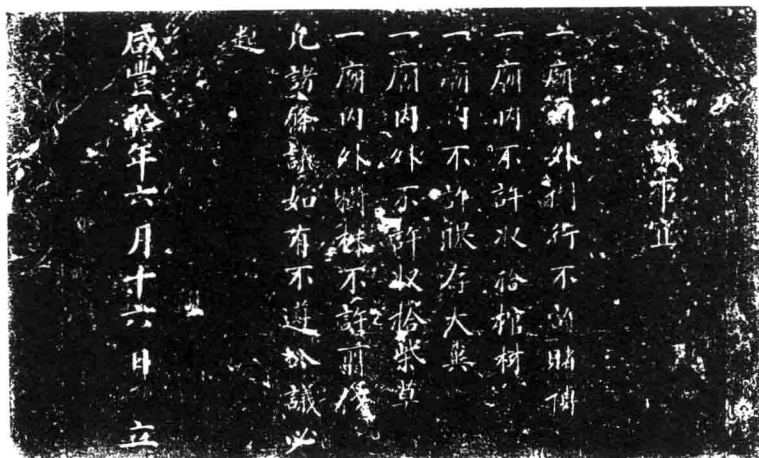 議示宜
一廟內外利行不許賭博
一廟內不許收拾棺材
一廟內不許限存大
一廟內外不許收拾柴草
一廟內外樹林不許前伐
凡諸條議如有不遵公議必
起
咸豐拾年六月十六日 立